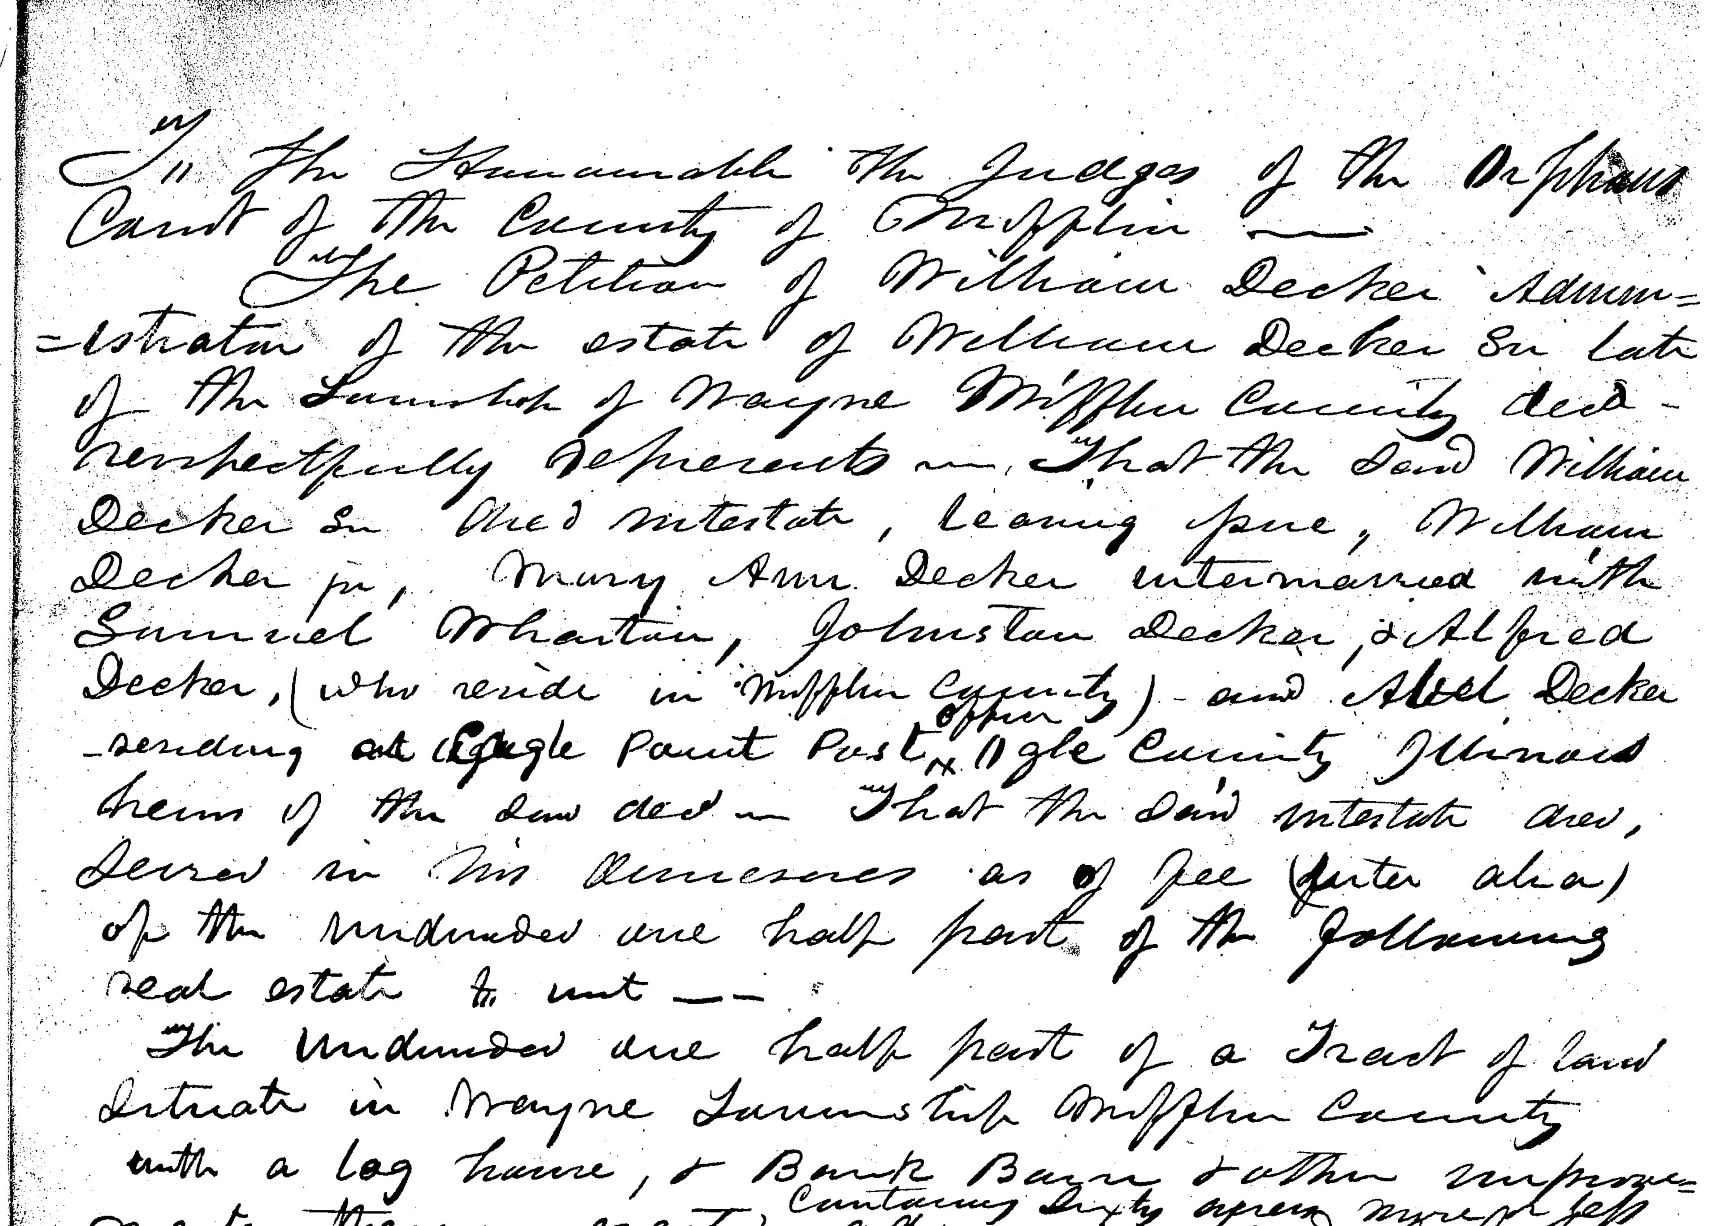 To the Honourable the Judges of the Orphans
Court of the County of Mifflin —
The Petition of William Decker Admin=
=istrator of the estate of William Decker Sr late
of the Township of Wayne Mifflin County decd -
respectfully represents — That the said William
Decker Sr died intestate, leaving issue, William
Decker jr, Mary Ann Decker intermarried with
Samuel Wharton, Johnston Decker, & Alfred
Decker, (who reside in Mifflin County) - and Abel Decker
residing at Eagle Point Post office Ogle County Illinois
heirs of the said decd — That the said intestate died,
seized in his demesnes as of fee (inter alia)
of the undivided one half part of the following
real estate to wit — —
The Undivided one half part of a Tract of land
situate in Wayne Township Mifflin County
with a log house, & Bank Barn & other improve=
Containing Sixty acres more or less